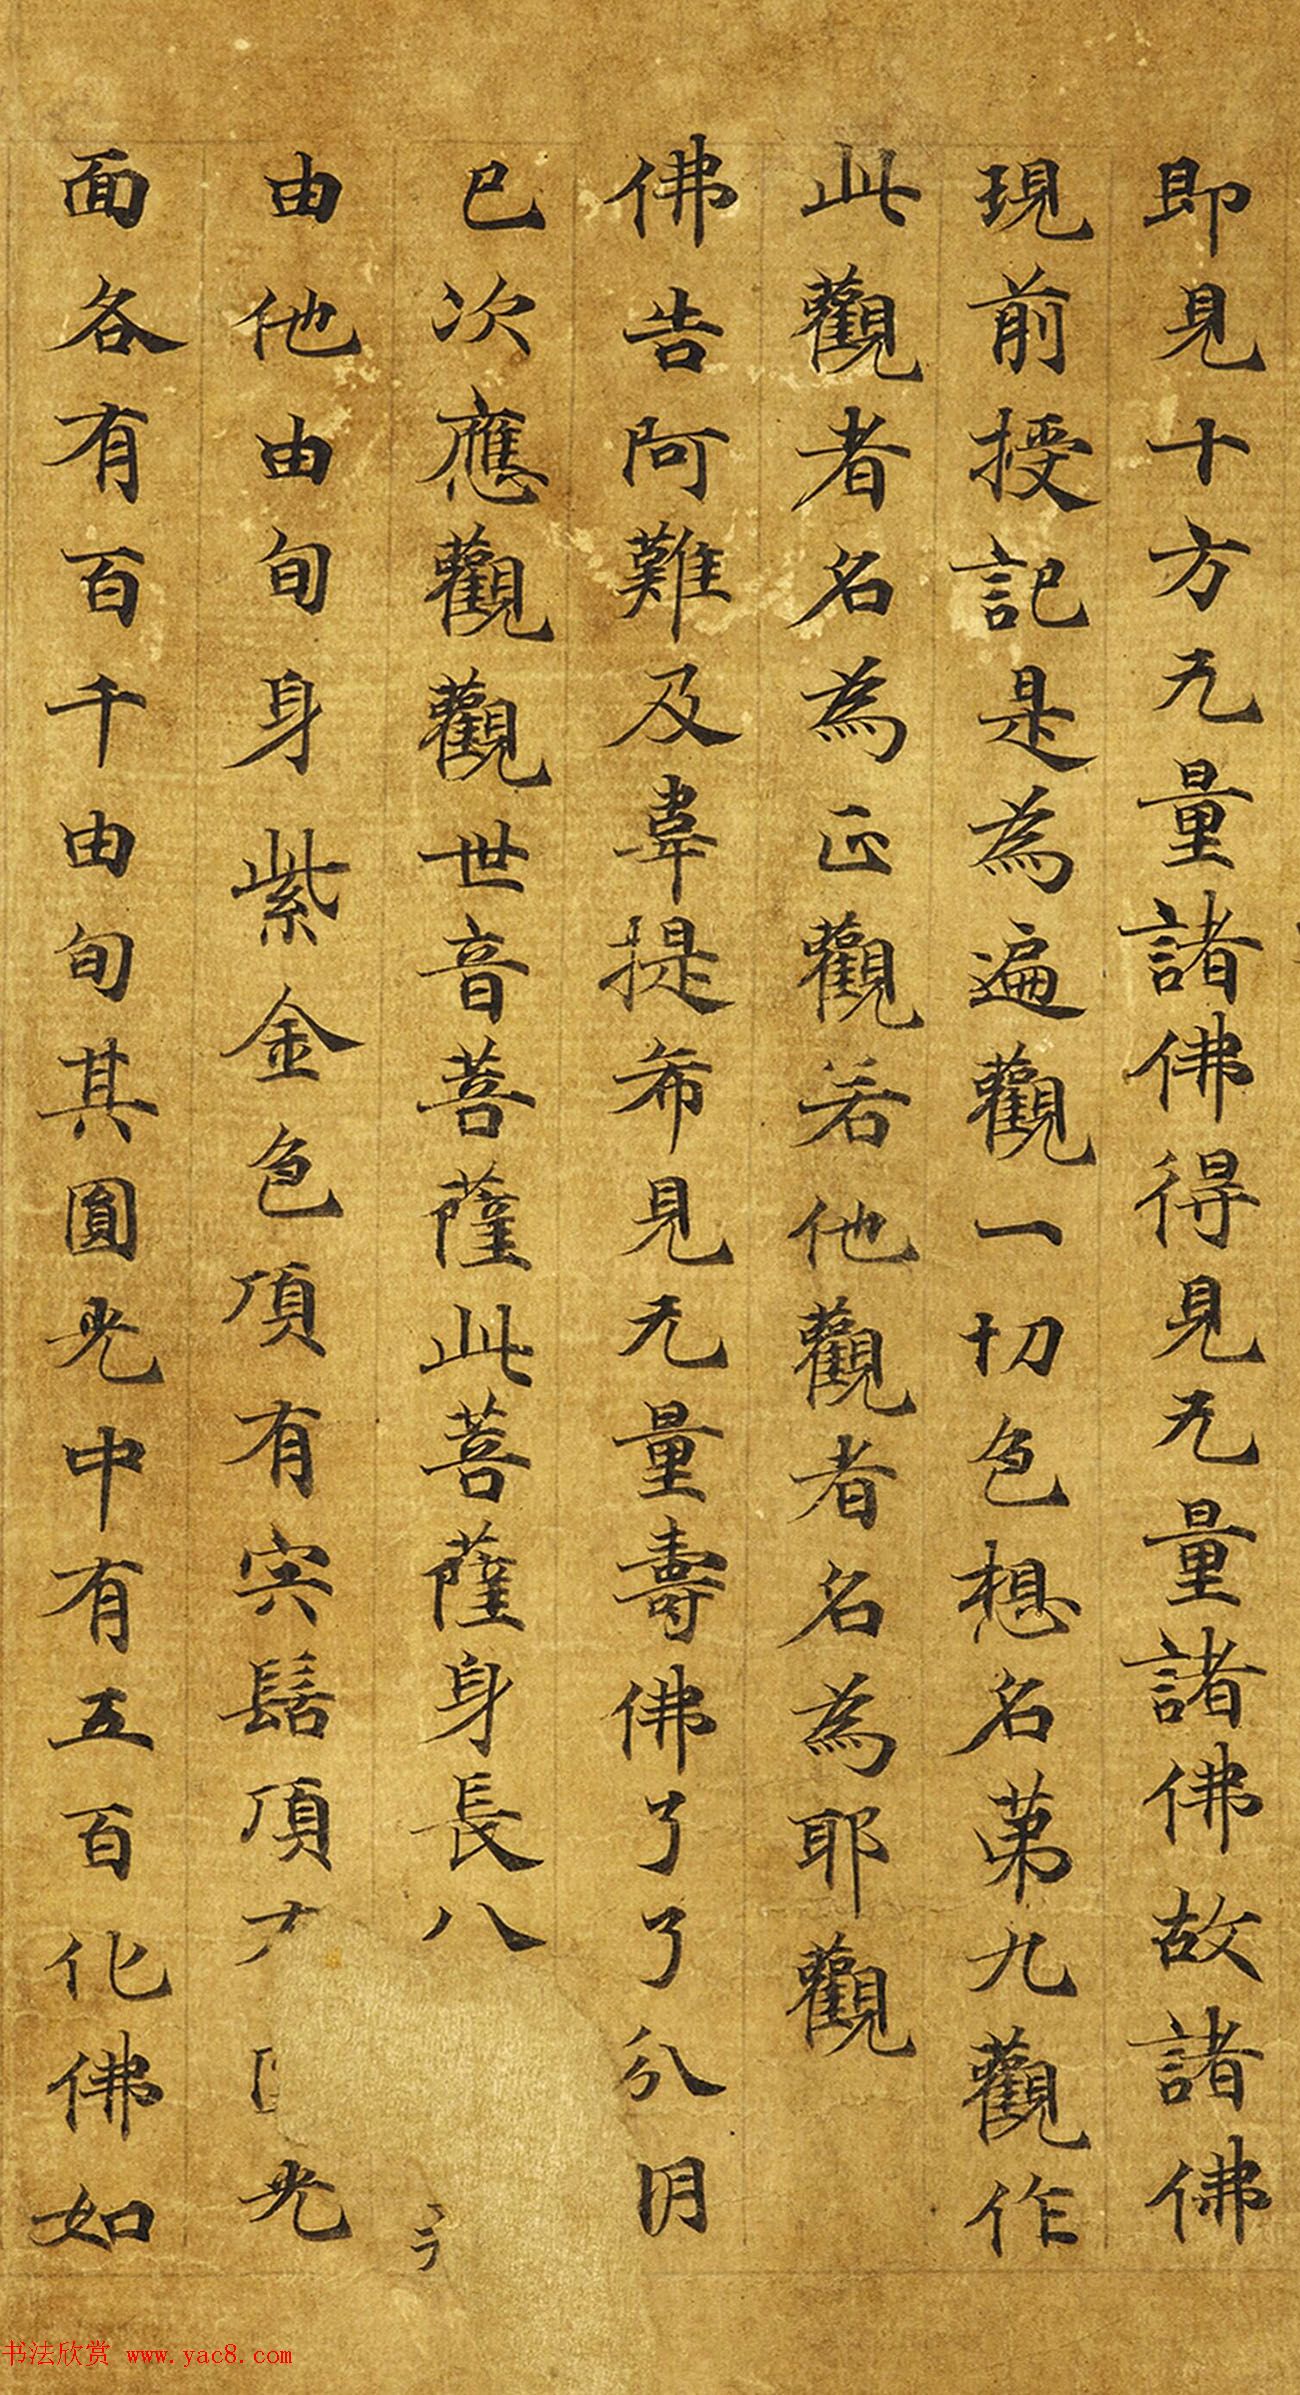 即見十方无量諸佛得見无量諸佛故諸佛
現前授記是為遍觀一切色想名苐九觀作
此觀者名為正觀若他觀者名為耶觀
佛告阿難及韋提希見无量壽佛了了分明
已次應觀觀世音菩薩此菩薩身長八
由他由旬身紫金色頂有宍髻頂光
面各有百千由旬其圓光中有五百化佛如
书法欣赏 www.yac8.com